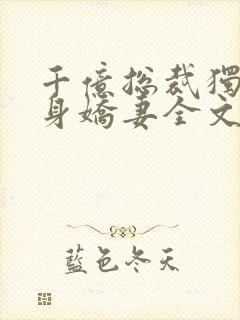 千億總裁獨
身嬌妻全文
藍色冬天